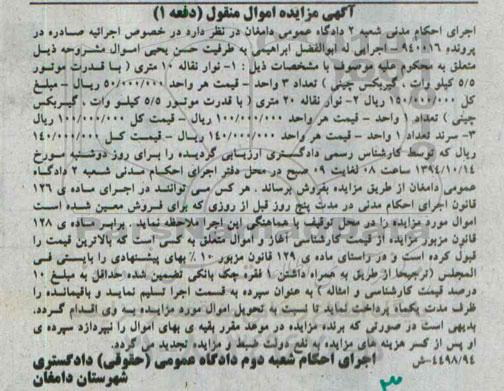 آگهی مزایده اموال منقول (دفعه ۱)
اجرای احکام مدنی شعبه ۲ دادگاه عمومی دامغان در نظر دارد در خصوص اجرائیه صادره در
پرونده ۹۴۰۰۱۶- اجرای له ابوالفضل ابراهیمی به طرفیت حسن یحیی اموال مشروحه ذیل
متعلق به محکوم علیه موصوف با مشخصات ذیل : ۱- نوار نقاله ۱۰ متری (با قدرت موتور
۵/۵ کیلو وات ، گیربکس چینی) تعداد ۳ واحد - قیمت هر واحد ۵۰/۰۰۰/۰۰۰ ریال - مبلغ
کل ۱۵۰/۰۰۰/۰۰۰ ریال ۲- نوار نقاله ۲۰ متری (با قدرت موتور ۵/۵ کیلو وات ، گیربکس
چینی) تعداد ۱ واحد - قیمت هر واحد ۱۰۰/۰۰۰/۰۰۰ - قیمت کل ۱۰۰/۰۰۰/۰۰۰ ریال
۳- سرند تعداد ۱ واحد - قیمت هر واحد ۱۴۰/۰۰۰/۰۰۰ ریال - قیمت کل ۱۴۰/۰۰۰/۰۰۰
ریال که توسط کارشناس رسمی دادگستری ارزیابی گردیده را برای روز دوشنبه مورخ
۱۳۹۴/۱۰/۱۴ ساعت ۰۸ لغایت ۰۹ صبح در محل دفتر اجرای احکام مدنی شعبه ۲ دادگاه
عمومی دامغان از طریق مزایده بفروش برساند . هر کس می توانند در اجرای ماده ی ۱۲۶
قانون اجرای احکام مدنی در مدت پنج روز قبل از روزی که برای فروش معین شده است
اموال مورد مزایده را در محل توقیف با هماهنگی این اجرا ملاحظه نماید . برابر ماده ی ۱۲۸
قانون مزبور مزایده از قیمت کارشناسی آغاز و اموال متعلق به کسی است که بالاترین قیمت را
قبول کرده است و در راستای ماده ی ۱۲۹ قانون مزبور ۱۰ ٪ بهای پیشنهادی را بایستی فی
المجلس (ترجیحا از طریق به همراه داشتن ۱ فقره چک بانکی تضمین شده حداقل به مبلغ ۱۰
درصد قیمت کارشناسی و امثاله) به عنوان سپرده به قسمت اجرا تسلیم نماید و باقیمانده را
ظرف مدت یکماه پرداخت نماید تا نسبت به تحویل اموال مورد مزایده به وی اقدام گردد.
بدیهی است در صورتی که برنده مزایده در موعد مقرر بقیه ی بهای اموال را نپردازد سپرده ی
او پس از کسر هزینه های مزایده به نفع دولت ضبط و مزایده تجدید می گردد.
۴۴۹۸/۹۴-ش اجرای احکام شعبه دوم دادگاه عمومی (حقوقی) دادگستری
شهرستان دامغان